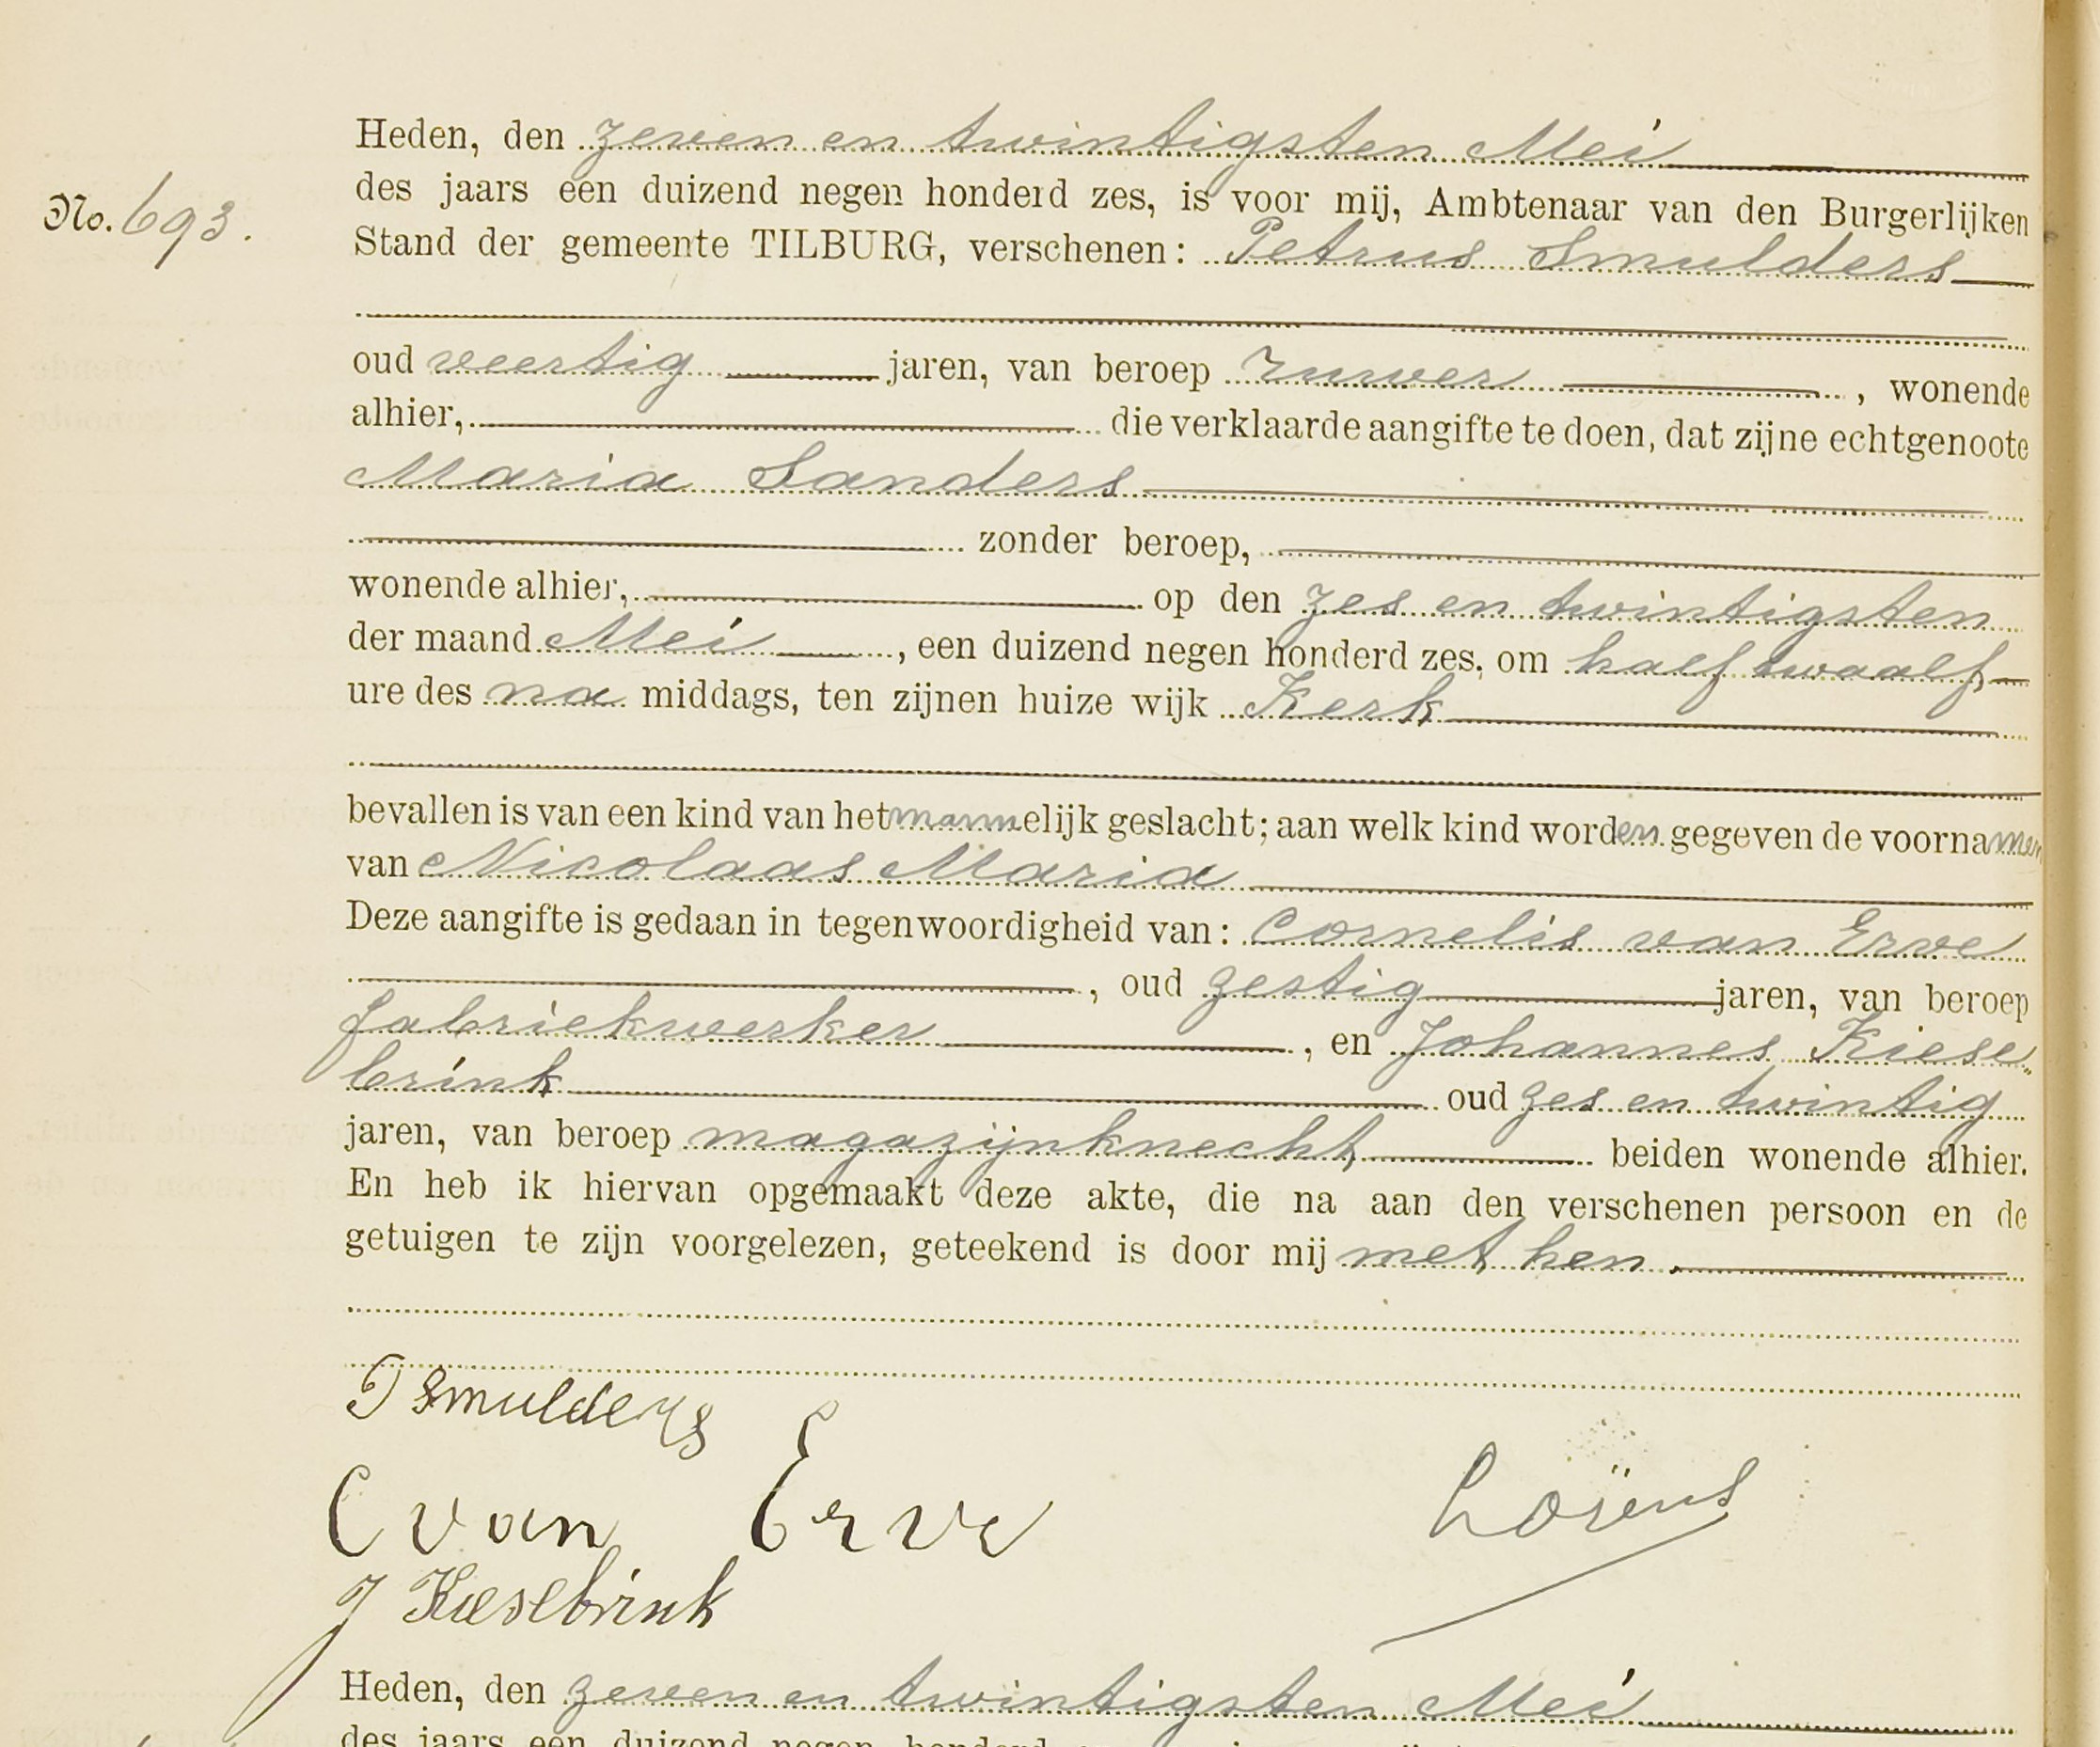 Heden, den zeven en twintigsten Mei
des jaars een duizend negen honderd zes, is voor mij, Ambtenaar van den Burgerlijken
No. 693.
Stand der gemeente TILBURG, verschenen: Petrus Smulders
oud veertig jaren, van beroep ruwer, wonende
alhier, die verklaarde aangifte te doen, dat zijne echtgenoote
Maria Sanders
zonder beroep,
wonende alhier, op den zes en twintigsten
der maand Mei, een duizend negen honderd zes, om half twaalf
ure des na middags, ten zijnen huize wijk Kerk
bevallen is van een kind van het mannelijk geslacht; aan welk kind worden gegeven de voornamen
van Nicolaas Maria
Deze aangifte is gedaan in tegenwoordigheid van: Cornelis van Erve
, oud zestig jaren, van beroep
fabriekwerker, en Johannes Kiese„
brink oud zes en twintig
jaren, van beroep magazijnknecht beiden wonende alhier.
En heb ik hiervan opgemaakt deze akte, die na aan den verschenen persoon en de
getuigen te zijn voorgelezen, geteekend is door mij met hen.
P Smulders
C van Erve
Loÿens
J Kiesebrink
Heden, den zeven en twintigsten Mei
des jaars een duizend negen